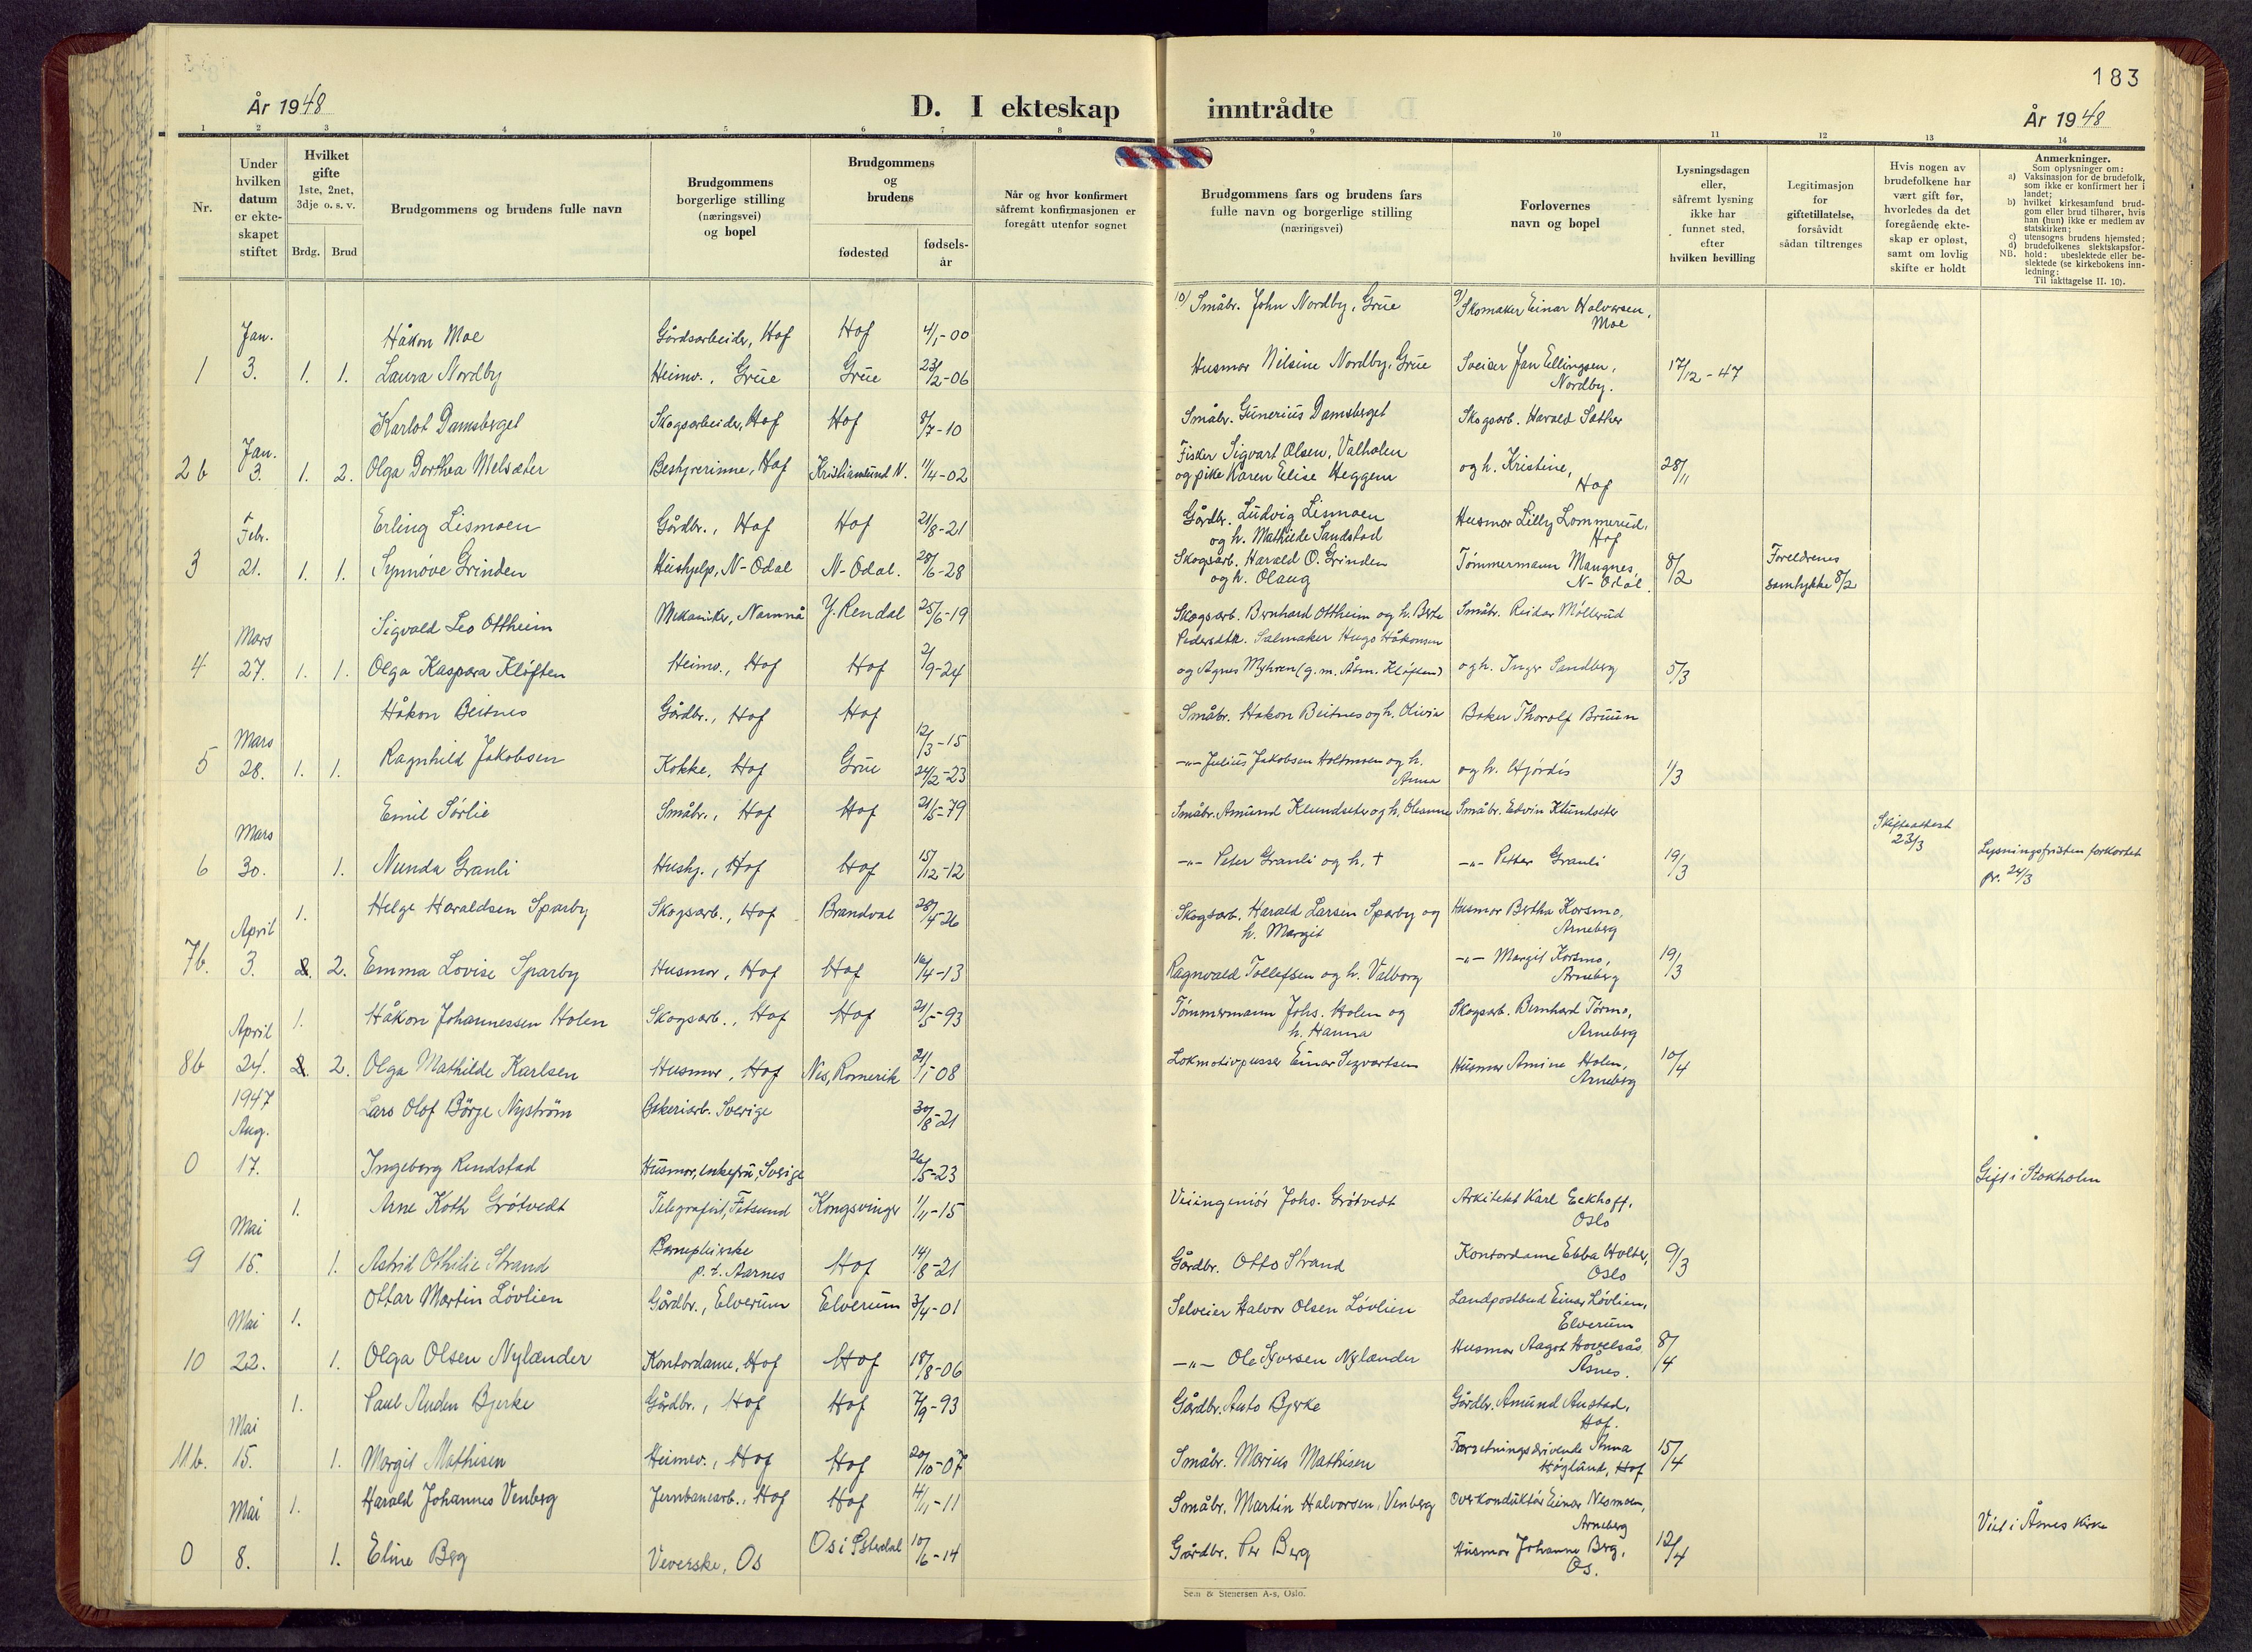 183
År 1948
D. I ekteskap inntrådte
År 1948
1 2 3 4 5 6 7 8 9 10 11 12 13 14
Nr.
Under
hvilken
datum
er ekte-
skapet
stiftet
Hvilket
gifte
1ste, 2net,
3dje o. s. v.
Brdg. Brud
Brudgommens og brudens fulle navn
Brudgommens
borgerlige stilling
(næringsvei)
og bopel
Brudgommens
og
brudens
fødested
fødsels-
år
Når og hvor konfirmert
såfremt konfirmasjonen er
foregått utenfor sognet
Brudgommens fars og brudens fars
fulle navn og borgerlige stilling
(næringsvei)
Forlovernes
navn og bopel
Lysningsdagen
eller,
såfremt lysning
ikke har
funnet sted,
efter
hvilken bevilling
Legitimasjon
for
giftetillatelse,
forsåvidt
sådan tiltrenges
Hvis nogen av
brudefolkene har
vært gift før,
hvorledes da det
foregående ekte-
skap er opløst,
samt om lovlig
skifte er holdt
Anmerkninger.
Som oplysninger om:
a) Vaksinasjon for de brudefolk,
som ikke er konfirmert her i
landet;
b) hvilket kirkesamfund brud-
gom eller brud tilhører, hvis
han (hun) ikke er medlem av
statskirken;
c) utensogns brudens hjemsted;
d) brudefolkenes slektskapsfor-
hold: ubeslektede eller be-
slektede (se kirkebokens inn-
ledning:
NB.
Til iakttagelse II. 10).
Jan. Håkon Moe Gårdsarbeider, Hof Hof 4/1-00 Småbr. John Nordby, Grue Skomaker Einar Halvorsen,
Moe
1 3. 1. 1. Laura Nordby Heimv., Grue Grue 23/2-06 Husmor Nilsine Nordby, Grue Sveiser Jan Ellingsen, 17/12-47
Nordby.
Karlot Damsberget Skogsarbeider, Hof Hof 8/7-10 Småbr. Gunerius Damsberget Skogsarb. Harald Sæther
Jan. Fisker Sigvart Olsen, Valholen
2 b 3. 1. 2. Olga Dorthea Melsæter Bestyrerinne, Hof Kristiansund N. 11/4-02 og pike Karen Elise Heggem og h. Kristine, 28/11
Hof
Febr. Erling Lismoen Gårdbr., Hof Hof 21/8-21 Gårdbr. Ludvig Lismoen Husmor Lilly Lommerud,
og h. Mathilde Sandstad Hof
3 21. 1. 1. Synnöve Grinden Hushjelp, N-Odal N-Odal. 28/6-28 Skogsarb. Harald O. Grinden Tømmermann Maugnes, 8/2 Foreldrenes
og h. Olaug N-Odal. samtykke 8/2
Sigvald Leo Ottheim Mekaniker, Namnå Y. Rendal 25/6-19 Skogsarb. Bernhard Ottheim og h. Berte Småbr. Reidar Möllerud
Mars Pedersdtr. Salmaker Hugo Håkonsen
4 27. 1. 1. Olga Kaspara Kløften Heimv., Hof Hof 2/9-24 og Agnes Myhren (g. m. Åsm. Kløften) og h. Inger Sandberg 5/3
Håkon Beitnes Gårdbr., Hof Hof 12/3-15 Småbr. Håkon Beitnes og h. Olivia Baker Thorolf Bruun
Mars
5 28. 1. 1. Ragnhild Jakobsen Kokke, Hof Grue 24/2-23 -"- Julius Jakobsen Holtmoen og h. og h. Hjördis 1/3
Anna
Emil Sørlie Småbr., Hof Hof 21/5-79 Småbr. Amund Klundseter og h. Oleanne Småbr. Edvin Klundseter
Mars Skifteattest
23/3
6 30. 1. Nunda Granli Hushj., Hof Hof 15/12-12 -"- Peter Granli og h. + -"- Petter Granli 19/3 Lysningsfristen forkortet
pr. 24/3
1. Helge Haraldsen Sparby Skogsarb., Hof Brandval 28/4-26 Skogsarb. Harald Larsen Sparby og Husmor Bertha Korsmo,
April h. Margit Arneberg
7b. 3. 2. 2. Emma Lovise Sparby Husmor, Hof Hof 16/4-13 Ragnvald Tollefsen og h. Valborg -"- Margit Korsmo, 19/3
Arneberg
April 1. Håkon Johannessen Holen Skogsarb., Hof Hof 21/5-93 Tømmermann Johs. Holen og Skogsarb. Bernhard Tørmo,
h. Hanna Arneberg
8b 24. 2. 2. Olga Mathilde Karlsen Husmor, Hof Nes, Romerik 21/1-08 Lokmotivpusser Einar Sigvartsen Husmor Amine Holen, 10/4
Arneberg
1947 Lars Olof Börje Nyström Bakeriarb. Sverige 30/8-21
Aug.
0 17. Ingeborg Rundstad Husmor, enkefru, Sverige 26/5-23 Gift i Stokholm
1. Arne Koth Grötvedt Telegrafist, Fetsund Kongsvinger 1/11-15 Veiingeniör Johs. Grötvedt Arkitekt Karl Eckhoff,
Mai Oslo
9 15. 1. Astrid Othilie Strand Barnepleierske Hof 14/8-21 Gårdbr. Otto Strand Kontordame Ebba Holter, 9/3
p. t. Aarnes Oslo
Mai 1. Ottar Martin Lövlien Gårdbr., Elverum Elverum 3/4-01 Selveier Halvor Olsen Lövlien Landpostbud Einar Lövlien,
Elverum
10 22. 1. Olga Olsen Nylænder Kontordame, Hof Hof 18/8-06 -"- Ole Syversen Nylænder Husmor Aagot Hovelsås 8/4
Åsnes.
1. Paul Auden Bjerke Gårdbr., Hof Hof 7/9-93 Gårdbr. Auto Bjerke Gårdbr. Amund Austad,
Mai Hof.
11b. 15. 1. Margit Mathisen Heimv., Hof Hof 20/10-07 Småbr. Marius Mathisen Forretningsdrivende Anna 15/4
Höglund, Hof
Mai 1. Harald Johannes Venberg Jernbanearb., Hof Hof 14/11-11 Småbr. Martin Halvorsen, Venberg Overkonduktör Einar Nesmoen,
Arneberg Viet i Åsnes kirke
0 8. 1. Eline Berg Veverske, Os Os i Østerdal 10/6-14 Gårdbr. Per Berg Husmor Johanne Berg, 12/4
Os.
Sem & Stenersen A-s, Oslo.